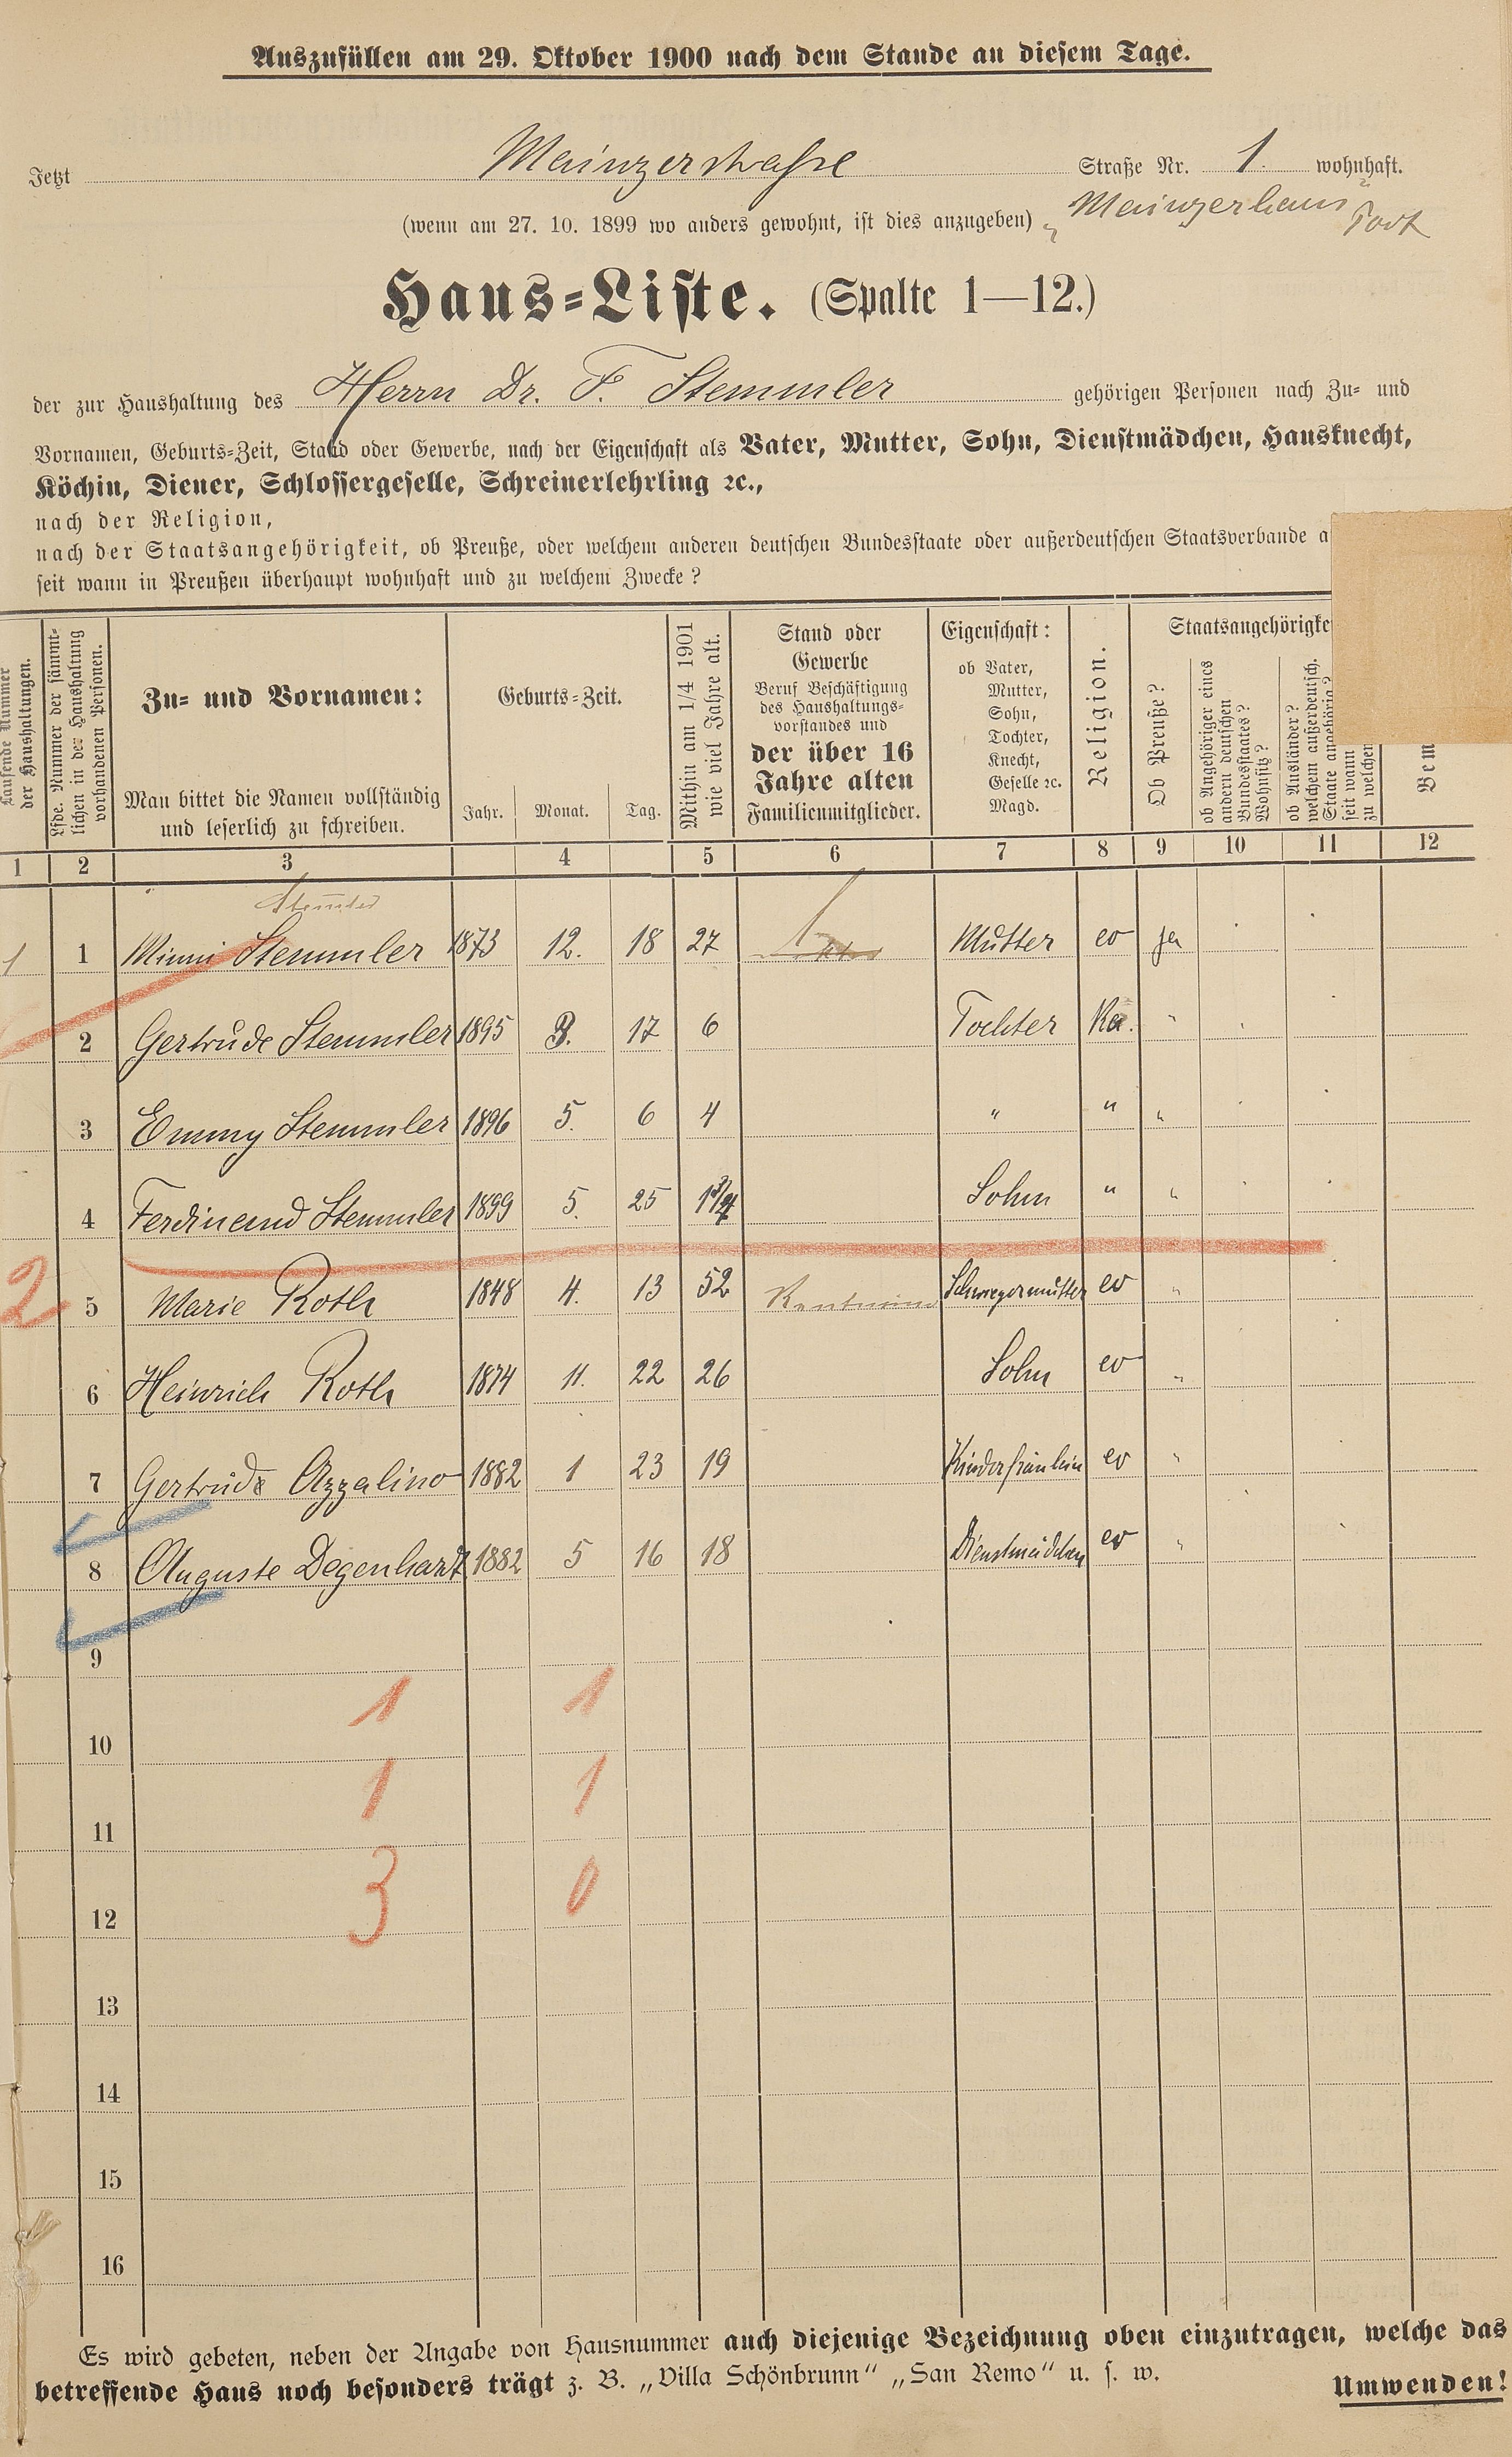 Auszufüllen am 29. Oktober 1900 nach dem Stande an diesem Tage.
Jetzt Mainzerstraße Straße Nr. 1. wohnhaft.
(wenn am 27. 10. 1899 wo anders gewohnt, ist dies anzugeben) „ Mainzerhaus
Haus-Liste. (Spalte 1—12.)
der zur Haushaltung des Herrn Dr. F. Stemmler gehörigen Personen nach Zu- und
Vornamen, Geburts-Zeit, Stand oder Gewerbe, nach der Eigenschaft als Vater, Mutter, Sohn, Dienstmädchen, Hausknecht,
Köchin, Diener, Schlossergeselle, Schreinerlehrling ꝛc.,
nach der Religion,
nach der Staatsangehörigkeit, ob Preuße, oder welchem anderen deutschen Bundesstaate oder außerdeutschen Staatsverbande a
seit wann in Preußen überhaupt wohnhaft und zu welchem Zwecke?
Laufende Nummer
der Haushaltungen.
Lfde. Nummer der sämmt-
lichen in der Haushaltung
vorhandenen Personen.
Zu- und Vornamen:
Man bittet die Namen vollständig
und leserlich zu schreiben.
Geburts-Zeit.
Jahr. Monat. Tag.
Mithin am 1/4 1901
wie viel Jahre alt.
Stand oder
Gewerbe
Beruf Beschäftigung
des Haushaltungs-
vorstandes und
der über 16
Jahre alten
Familienmitglieder.
Eigenschaft:
ob Vater,
Mutter,
Sohn,
Tochter,
Knecht,
Geselle ꝛc.
Magd.
Religion.
Staatsangehörigke
Ob Preuße?
ob Angehöriger eines
andern deutschen
Bundesstaates?
Wohnsitz?
ob Ausländer?
welchem außerdeutsch.
Staate angehörig?
seit wann
zu welchem
Bem
1 2 3 4 5 6 7 8 9 10 11 12
1 1 Minni Stemmler 1873 12. 18 27 Mutter ev ja
2 Gertrude Stemmler 1895 3. 17 6 Tochter Ka. "
3 Emmy Stemmler 1896 5. 6 4 " " "
4 Ferdinand Stemmler 1899 5. 25 1¾ Sohn " "
2 5 Marie Roth 1848 4. 13 52 Rentnerin Schwiegermutter ev "
6 Heinrich Roth 1874 11. 22 26 Sohn ev "
7 Gertrude Azzalino 1882 1 23 19 Kinderfräulein ev "
8 Auguste Degenhardt 1882 5 16 18 Dienstmädchen ev "
9
1 1
10
1 1
11
3 0
12
13
14
15
16
Es wird gebeten, neben der Angabe von Hausnummer auch diejenige Bezeichnung oben einzutragen, welche das
betreffende Haus noch besonders trägt z. B. „Villa Schönbrunn“ „San Remo“ u. s. w.
Umwenden!